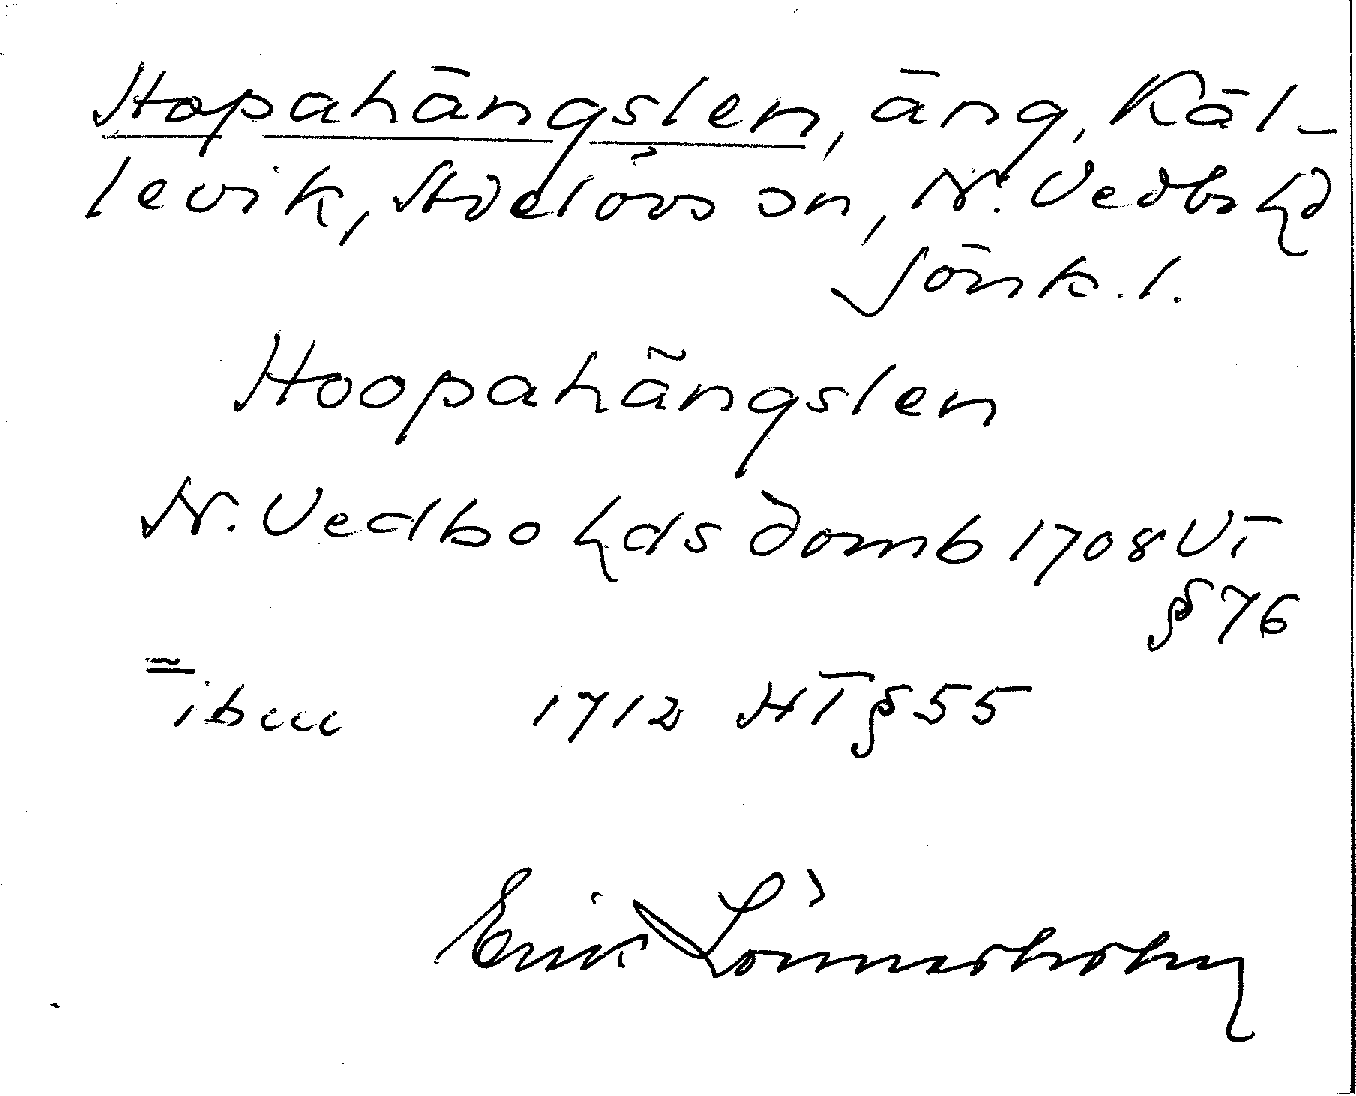 Hopahängslen, äng, Käl-
levik, Adelövs sn, N. Vedbo hd
Jönk.l.
Hoopahängslen
N. Vedbo hds domb 1708 VT
§ 76
ibm 1712 HT § 55
Erik Lönnerholm